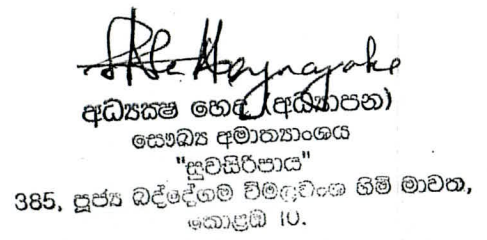 අධ්‍යක්ෂ හෙද (අධ්‍යාපන)
සෞඛ්‍ය අමාත්‍යාංශය
"සුවසිරිපාය"
385, පූජ්‍ය බද්දේගම විමලවංශ හිමි මාවත,
කොළඹ 10.